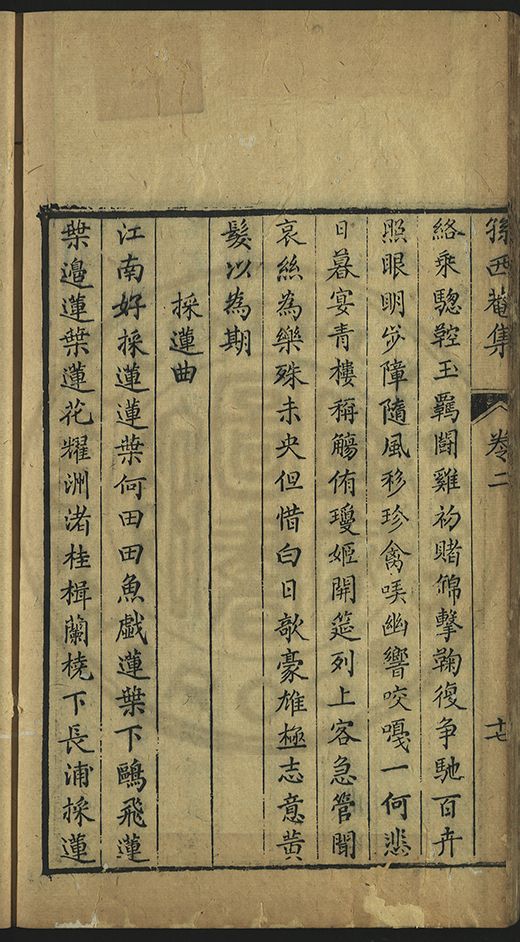 孫西菴集 卷二 十七
絡乗驄鞚玉羈鬪雞初賭𠋣擊鞠復争馳百卉
照眼明步障隨風移珍禽哢幽響咬嘎一何悲
日暮宴青樓稱觴侑瓊姬開筵列上客急管聞
哀絲為樂殊未央但惜白日欹豪雄極志意黄
髮以為期
採蓮曲
江南好採蓮蓮葉何田田魚戲蓮葉下鷗飛蓮
葉邉蓮葉蓮花耀洲渚桂楫蘭橈下長浦採蓮